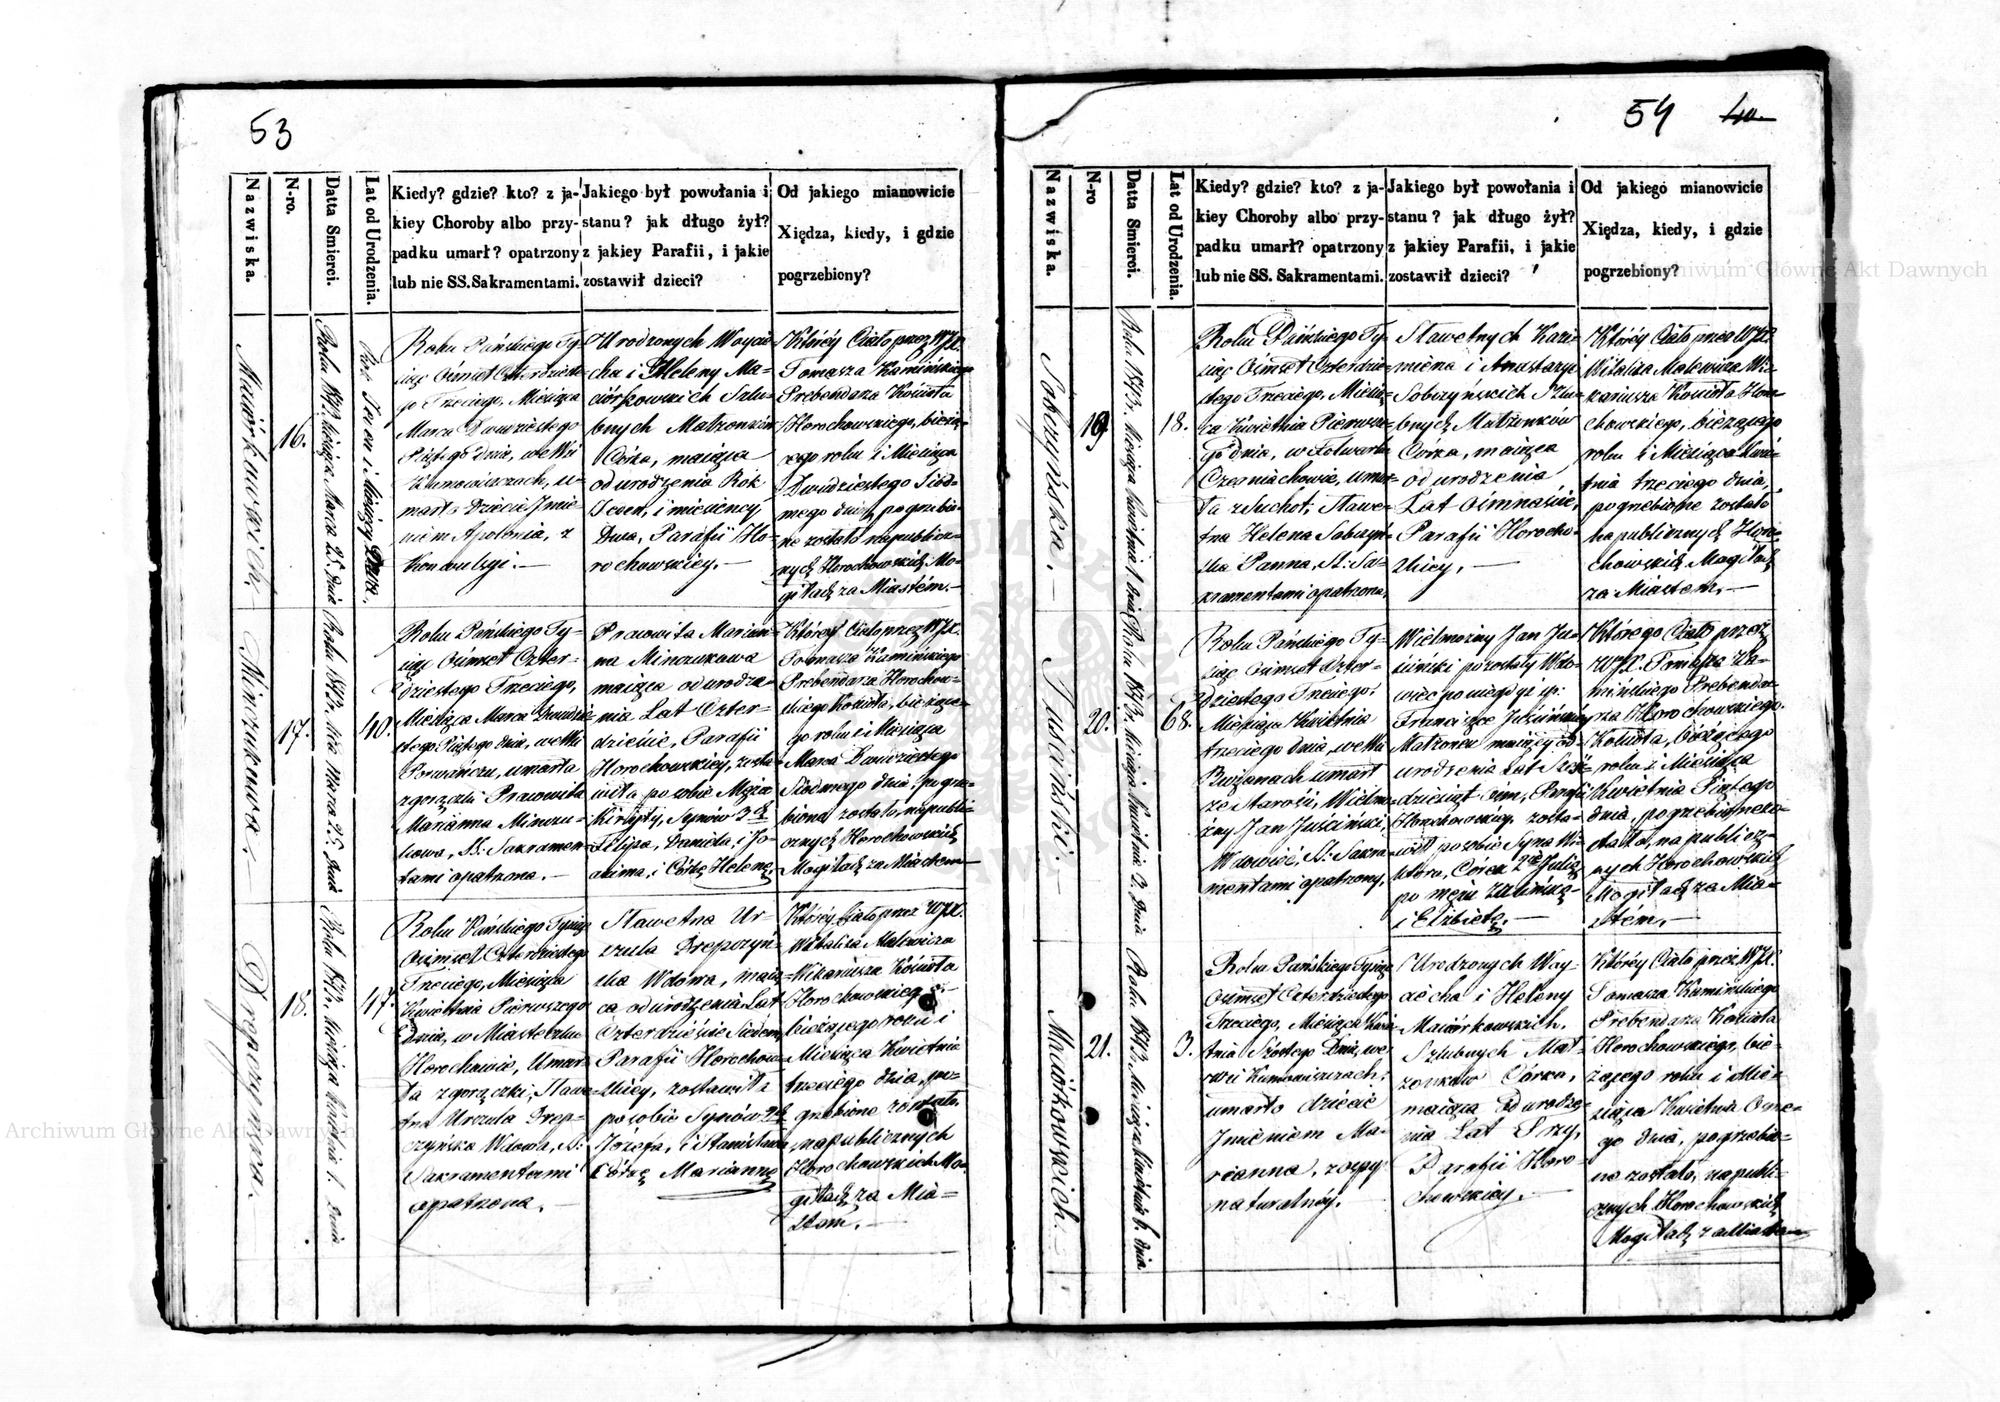 53
Nazwiska.
N-ro.
Datta Smierci.
Lat od Urodzenia.
Kiedy? gdzie? kto? z ja-
kiey Choroby albo przy-
padku umarł? opatrzony
lub nie SS. Sakramentami.
Jakiego był powołania i
stanu? jak długo żył?
z jakiey Parafii, i jakie
zostawił dzieci?
Od jakiego mianowicie
Xiędza, kiedy, i gdzie
pogrzebiony?
16.
Roku 1843. Miesiąca Marca 25. dnia
Rok Jeden i Miesięcy Dwa.
Roku Pańskiego Ty-
siąc Ośmset Czterdzieste-
go Trzeciego, Miesiąca
Marca Dwudziestego
Piątego dnia, we Wsi
umarło Dziecie Jmie-
niem Apolonia, z
Konwulsyi.—
Urodzonych Woycie-
cha i Heleny Ma-
ciórkowskich Szlu-
bnych Małżonków
Córka, maiąca
od urodzenia Rok
Jeden, i miesięcy
Dwa, Parafii Ho-
rochowskiey.—
Którey Ciało przez WJX.
Tomasza Kamińskiego
Prebendarza Kościoła
Horochowskiego, bieżą-
cego roku i Miesiąca
Dwudziestego Siód-
mego dnia, pogrzebio-
ne zostało na publicz-
nych Horochowskich Mo-
giłach za Miastem.—
Minczukowa.—
17.
Roku 1843. Mca Marca 25. dnia
40.
Roku Pańskiego Ty-
siąc Ośmset Czter-
dziestego Trzeciego,
Miesiąca Marca Dwudzie-
stego Piątego dnia, we Wsi
umarła
z gorączki Pracowita
Marianna Minczu-
kowa, SS: Sakramen-
tami opatrzona.—
Pracowita Marian-
na Minczukowa
maiąca od urodze-
nia Lat Czter-
dzieście, Parafii
Horochowskiey, zosta-
wiła po sobie Męża
Synów 3ch
Filipa, Daniela, i Jo-
akima, i Córkę Helenę.
Którey Ciało przez WJX.
Tomasza Kamińskiego
Prebendarza Horochow-
skiego Kościoła, bieżące-
go roku i Miesiąca
Marca Dwudziestego
Siódmego dnia pogrze-
biono zostało, na publi-
cznych Horochowskich
Mogiłach za Miastem—
18.
Roku 1843. Miesiąca Kwietnia 1. dnia
47.
Roku Pańskiego Tysiąc
Ośmset Czterdziestego
Trzeciego, Miesiąca
Kwietnia Pierwszego
Dnia, w Miasteczku
Horochowie, Umar-
ła z gorączki, Sławe-
tna Urszula Drep-
czyńska Wdowa, SS:
Sakramentami
opatrzona.—
Sławetna Ur-
szula Drepczyń-
ska Wdowa, maią-
ca od urodzenia Lat
Czterdzieście Siedem,
Parafii Horochow-
skiey, zostawiła
po sobie Synów 2ch
Józefa, i Stanisława
Córkę Mariannę
Którey Ciało przez WJX.
Witalisa Malewicza
Wikariusza Kościoła
Horochowskiego
bieżącego roku i
Miesiąca Kwietnia
trzeciego dnia, po-
grzebione zostało,
na publicznych
Horochowskich Mo-
giłach za Mia-
stem.—
54
Nazwiska.
N-ro
Datta Smierci.
Lat od Urodzenia.
Kiedy? gdzie? kto? z ja-
kiey Choroby albo przy-
padku umarł? opatrzony
lub nie SS. Sakramentami.
Jakiego był powołania i
stanu? jak długo żył?
z jakiey Parafii, i jakie
zostawił dzieci?
Od jakiego mianowicie
Xiędza, kiedy, i gdzie
pogrzebiony?
19.
Roku 1843. Miesiąca Kwietnia 1. dnia
18.
Roku Pańskiego Ty-
siąc Ośmset Czterdzie-
stego Trzeciego, Miesią-
ca Kwietnia Pierwsze-
go dnia, w Folwarku
umar-
ła z Suchot, Sławe-
tna Helena
Panna, SS: Sa-
kramentami opatrzona.
Sławetnych Kazi-
mierza i Anastazyi
Szlu-
bnych Małżonków
Córka, maiąca
od urodzenia
Lat Ośmnaście,
Parafii Horocho-
wskiey.—
Którey Ciało przez WJX.
Witalisa Malewicza Wi-
kariusza Kościoła Horo-
chowskiego, bieżącego
roku i Miesiąca Kwie-
tnia trzeciego dnia,
pogrzebione zostało
na publicznych Horo-
chowskich Mogiłach
za Miastem.—
Juściński.—
20.
Roku 1843. Miesiąca Kwietnia 3. dnia
68.
Roku Pańskiego Ty-
siąc Ośmset Czter-
dziestego Trzeciego,
Miesiąca Kwietnia
trzeciego dnia, we Wsi
Bużanach umarł
ze Starości, Wielmo-
żny Jan Juściński,
Wdowiec, SS: Sakra-
mentami opatrzony.
Wielmożny Jan Ju-
ściński pozostały Wdo-
wiec po niegdy śp:
Franciszce Juścińskiey
Małżonce maiący od
urodzenia Lat Sześć-
dziesiąt ośm, Parafii
Horochowskiey, zosta-
wił po sobie Syna Wi-
ktora, Córek 2ie Julią
po mężu
i Elżbietę.—
Którego Ciało przez
WJX. Tomasza Ka-
mińskiego Prebenda-
rza Horochowskiego
Kościoła, bieżącego
roku i Miesiąca
Kwietnia Piątego
dnia, pogrzebione zo-
stało, na publicz-
nych Horochowskich
Mogiłach za Mia-
stem.—
Maciórkowskich.—
21.
Roku 1843. Miesiąca Kwietnia 6. dnia
3.
Roku Pańskiego Tysiąc
Ośmset Czterdziestego
Trzeciego, Miesiąca Kwie-
tnia Szóstego Dnia, we
Wsi
umarło dziecie
Jmieniem Ma-
rianna, z ospy
naturalnéy.
Urodzonych Woy-
ciecha i Heleny
Maciórkowskich,
Szlubnych Mał-
żonków Córka,
maiąca od urodze-
nia Lat Trzy,
Parafii Horo-
chowskiey.—
Którey Ciało przez WJX.
Tomasza Kamińskiego
Prebendarza Kościoła
Horochowskiego, bie-
żącego roku i Mie-
siąca Kwietnia Osme-
go dnia, pogrzebio-
no zostało, na publi-
cznych Horochowskich
Mogiłach za Miastem
Archiwum Główne Akt Dawnych
Archiwum Główne Akt Dawnych